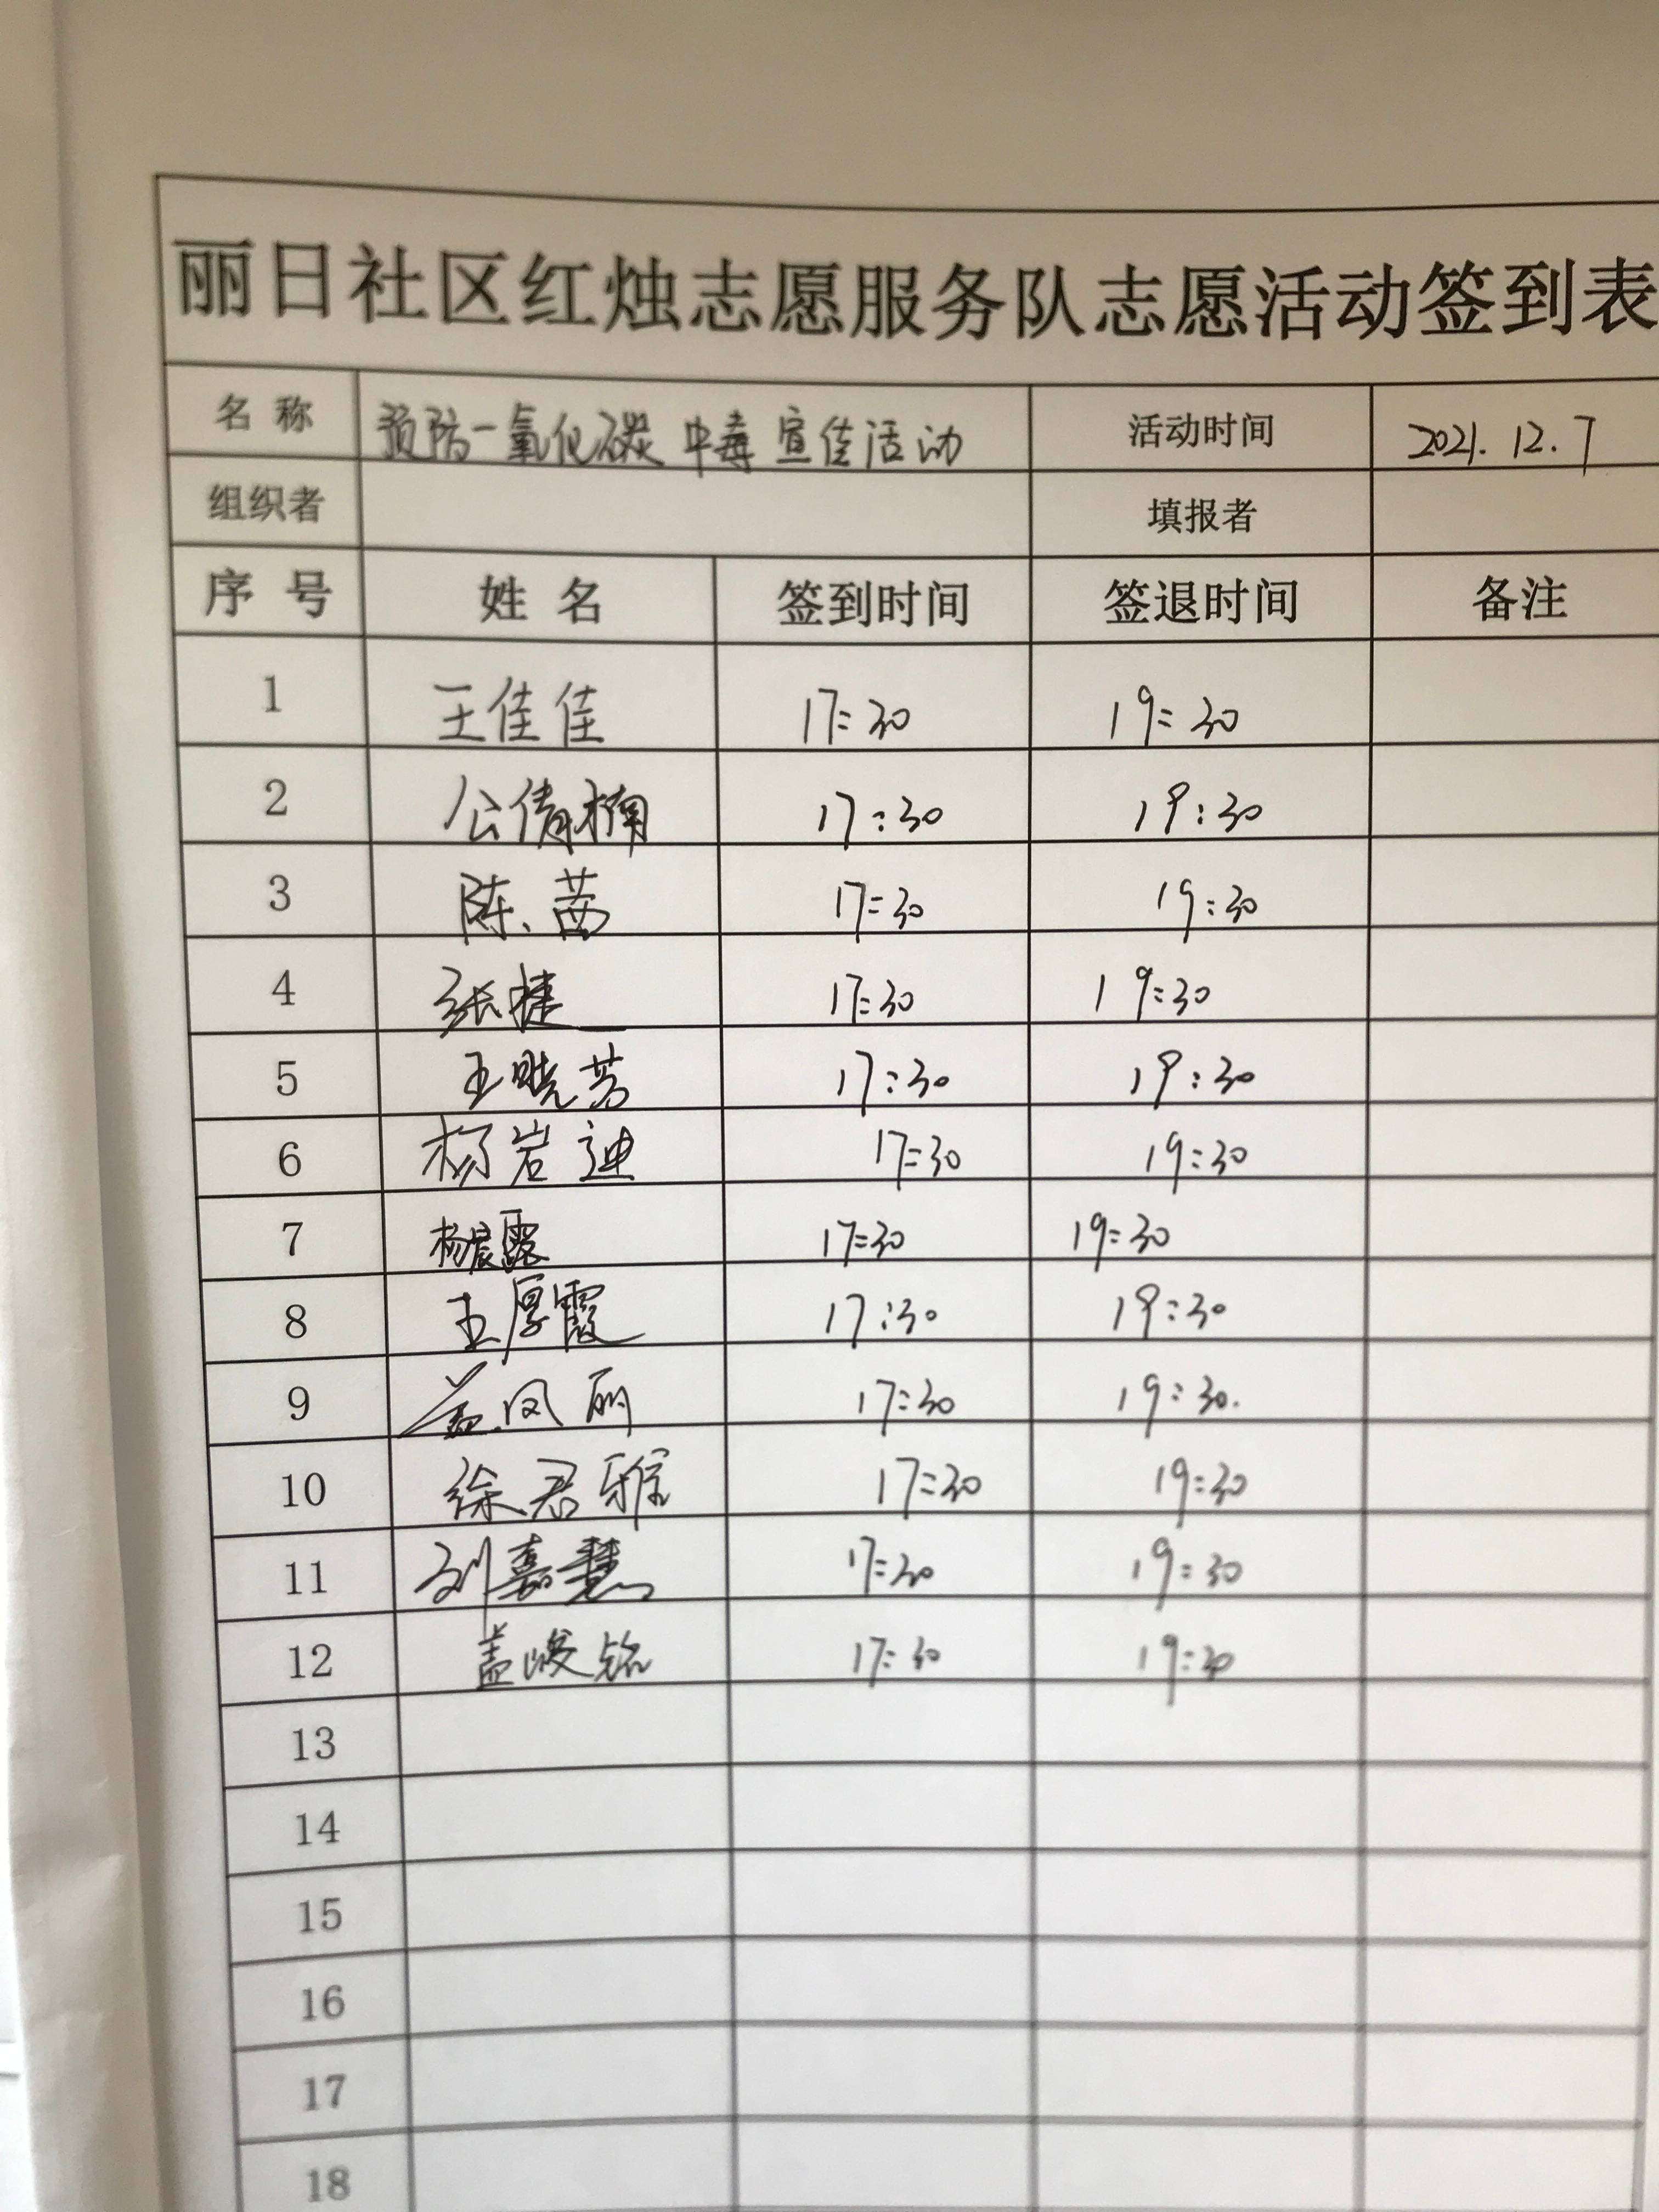 丽日社区红烛志愿服务队志愿活动签到表
名 称 预防一氧化碳中毒宣传活动 活动时间 2021.12.7
组织者 填报者
序 号 姓 名 签到时间 签退时间 备注
1 王佳佳 17:30 19:30
2 公倩楠 17:30 19:30
3 陈茜 17:30 19:30
4 张捷 17:30 19:30
5 王晓芳 17:30 19:30
6 杨岩迪 17:30 19:30
7 杨晨露 17:30 19:30
8 王厚霞 17:30 19:30
9 盖凤丽 17:30 19:30.
10 徐君雅 17:30 19:30
11 刘嘉慧 17:30 19:30
12 盖峻铭 17:30 19:30
13
14
15
16
17
18